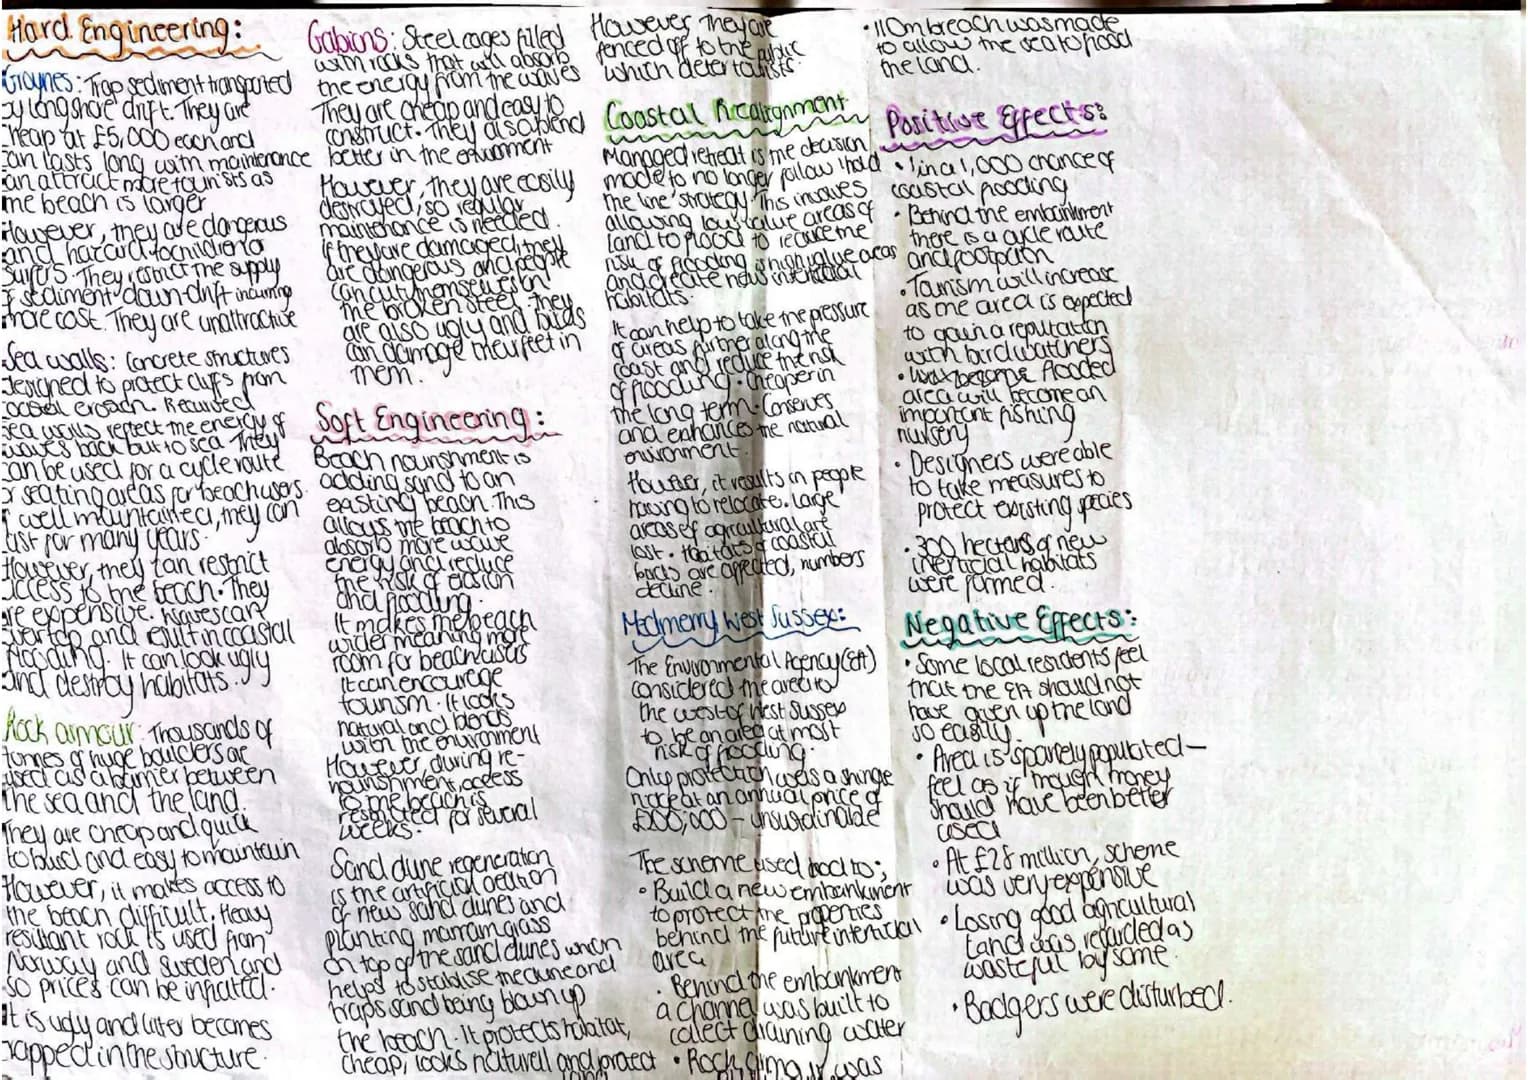 Hard Engineering:
Groynes: Trap sediment transported
by longshore drift. They are
cheap at £5,000 each and
can lasts long with maintenance
can attract more tourists as
the beach is larger
However, they are dangerous
and hazard to children or
surfers. They restrict the supply
of sediment down-drift incurring
more cost. They are unattractive
Sea walls: Concrete structures
designed to protect cliffs from
coastal erosion. Recurved
sea walls reflect the energy of
waves back out to sea. They
can be used for a cycle route
or seating areas for beach users.
If well maintained, they can
last for many years.
However, they can restrict
access to the beach. They
are expensive. Waves can
overtop and result in coastal
flooding. It can look ugly
and destroy habitats.
Rock armour: Thousands of
tonnes of huge boulders are
used as a barrier between
the sea and the land.
They are cheap and quick
to build and easy to maintain
However, it makes access to
the beach difficult. Heavy
resistant rock is used from
Norway and Sweden and
so prices can be inflated.
It is ugly and litter becomes
trapped in the structure.
Gabions: Steel cages filled
with rocks that will absorb
the energy from the waves
They are cheap and easy to
construct. They also blend
better in the environment
However, they are easily
destroyed, so regular
maintenance is needed.
If they are damaged, they
are dangerous and people
can cut themselves on
the broken steel. They
are also ugly and birds
can damage their feet in
them.
Soft Engineering:
Beach nourishment is
adding sand to an
existing beach. This
allows the beach to
absorb more wave
energy and reduce
the risk of erosion
and flooding.
It makes the beach
wider meaning more
room for beach users
It can encourage
tourism. It looks
natural and blends
with the environment
However, during re-
nourishment, access
to the beach is
restricted for several
weeks.
Sand dune regeneration
is the artificial creation
of new sand dunes and
planting marram grass
on top of the sand dunes which
helps to stabilise the dune and
traps sand being blown up
the beach. It protects habitat,
cheap, looks natural and protect
land
However, They are
fenced off to the public
which deter tourists.
Coastal Realignment
Managed retreat is the decision
made to no longer follow 'hold
the line' strategy. This involves
allowing low value areas of
land to flood to reduce the
risk of flooding in high value areas
and create new intertidal
habitats.
It can help to take the pressure
of areas further along the
coast and reduce the risk
of flooding. Cheaper in
the long term. Conserves
and enhances the natural
environment.
However, it results in people
having to relocate. Large
areas of agricultural are
lost. Habitats of coastal
birds are affected, numbers
decline.
Medmerry West Sussex:
The Environmental Agency (EA)
considered the area to
the west of West Sussex
to be an area at most
risk of flooding.
Only protection was a shingle
ridge at an annual price of
£200,000 – unsustainable
The scheme used had to;
• Build a new embankment
to protect the properties
behind the future intertidal
area
• Behind the embankment
a channel was built to
collect draining water
• Rock armour was
• 110m breach was made
to allow the sea to flood
the land.
Positive Effects:
• 1 in a 1,000 chance of
coastal flooding
• Behind the embankment
there is a cycle route
and footpath
• Tourism will increase
as the area is expected
to gain a reputation
with birdwatchers
flooded
area will become an
important fishing
nursery
• Designers were able
to take measures to
protect existing species
• 300 hectares of new
intertidal habitats
were formed.
Negative Effects:
• Some local residents feel
that the EA should not
have given up the land
so easily.
• Area is sparsely populated –
feel as if though money
should have been better
used
• At £28 million, scheme
was very expensive
• Losing good agricultural
land was regarded as
wasteful by some.
• Badgers were disturbed.